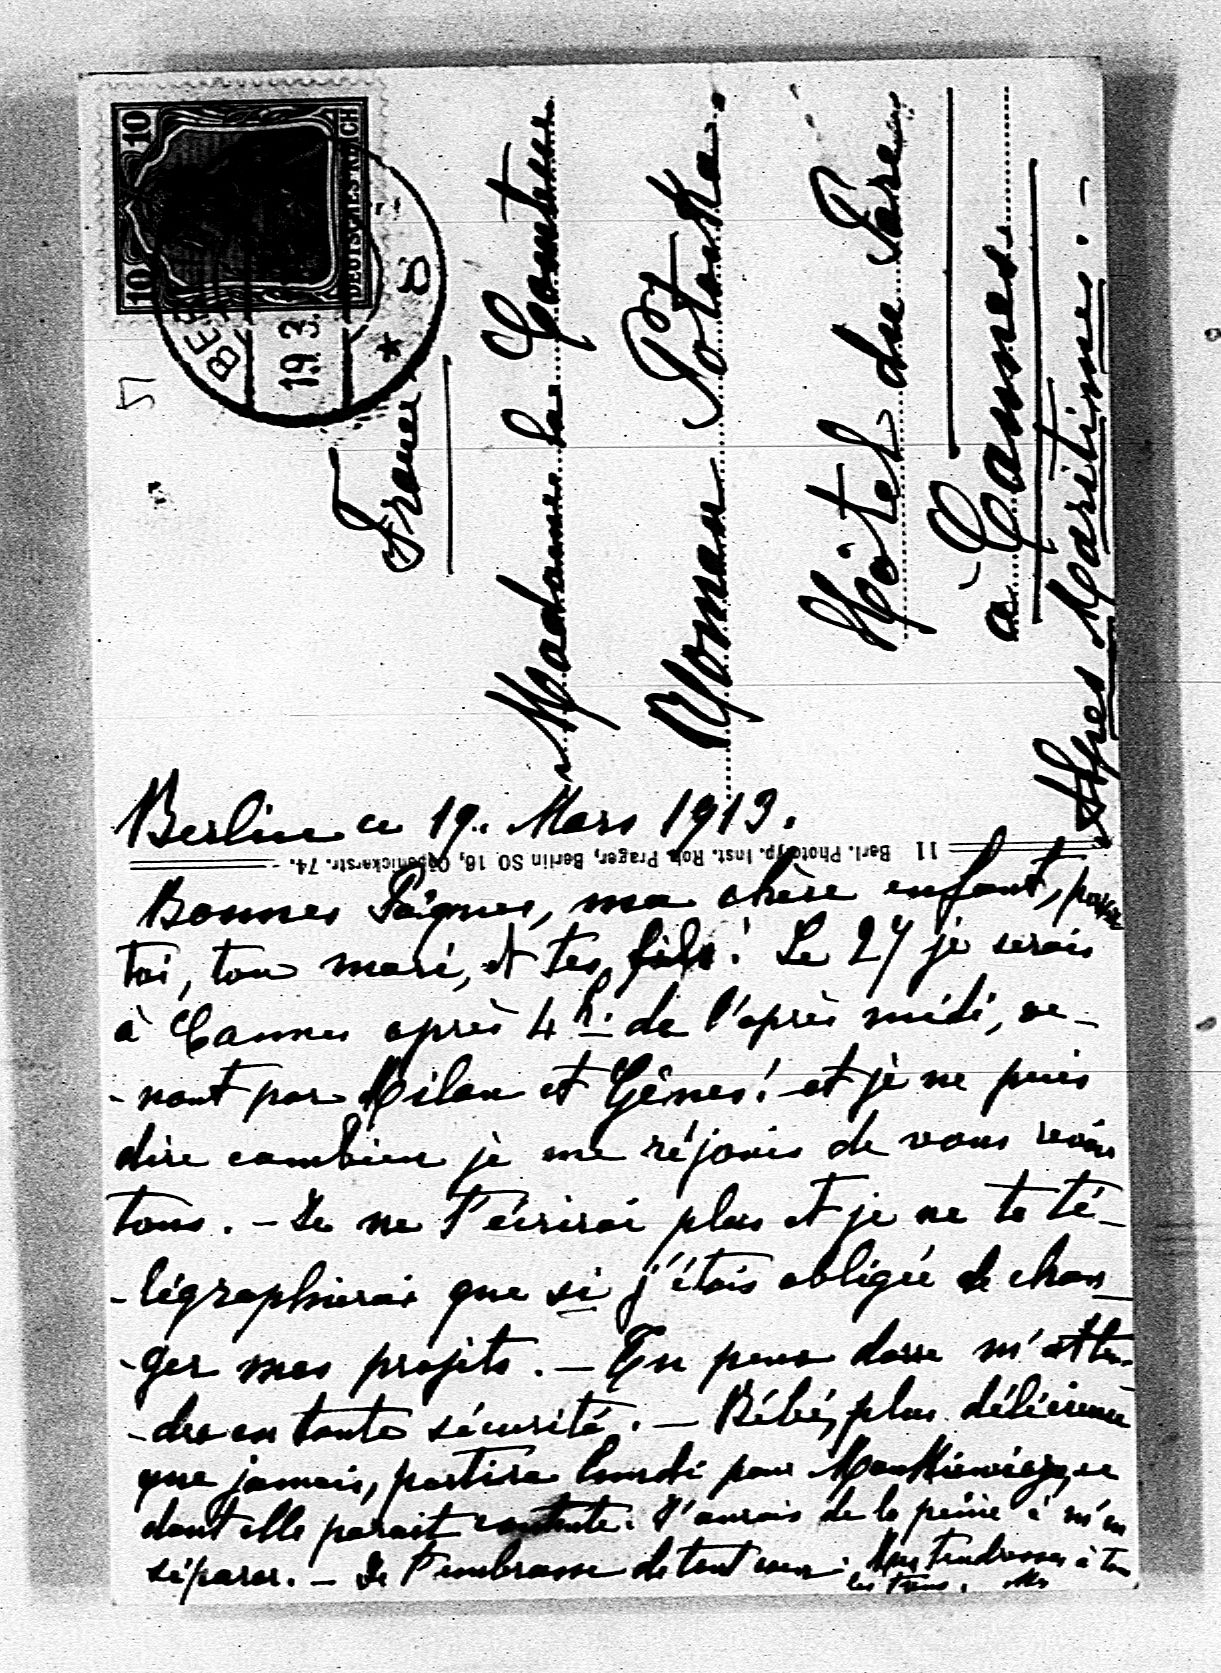 10
10
DEUTSCHES REICH
BER
19.3.
*
France
Madame la Comtesse
Roman Potocka
Hôtel du Parc
à Cannes.
Alpes Maritimes. -
Berlin ce 19. Mars 1913.
11 Berl. Phototyp. Inst. Rob. Prager, Berlin SO 16, Cöpenickerstr. 74.
Bonnes Pâques, ma chère enfant, pour
toi, ton mari, et tes fils! Le 27 je serais
à Cannes après 4 h. de l'après midi, ve-
-nant par Milan et Gênes! et je ne puis
dire combien je me réjouis de vous revoir
tous. - Je ne t'écrirai plus et je ne te té-
-légraphierai que si j'étais obligée de chan-
-ger mes projets. - Tu peux donc m'atten-
-dre en toute sécurité. - Bébé, plus délicieuse
que jamais, partira lundi pour ce
dont elle parait contente. J'aurais de la peine à m'en
séparer. - Je t'embrasse de tout cœur. Mes tendresses à tous
les trois.